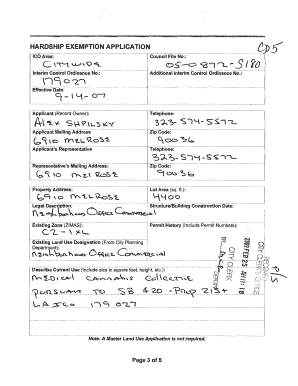 CD5
HARDSHIP EXEMPTION APPLICATION
ICO Area: Council File No.:
CITYWIDE 05-0872-S180
Interim Control Ordinance No.: Additional Interim Control Ordinance No.:
179027
Effective Date:
9-14-07
Applicant (Record Owner): Telephone:
ALEX SHPILSKY 323-574-5572
Applicant Mailing Address Zip Code:
6910 MELROSE 90036
Applicant's Representative Telephone:
323-574-5572
Representative's Mailing Address: Zip Code:
6910 MELROSE 90036
Property Address: Lot Area (sq. ft.):
6910 MELROSE 4400
Legal Description: Structure/Building Construction Date:
Neighborhood Office Commercial
Existing Zone (ZIMAS): Permit History (Include Permit Numbers):
C2-1XL
Existing Land Use Designation (From City Planning
Department):
Neighborhood Office Commercial
Describe Current Use (Include size in square feet, height, etc.):
MEDICAL CANNABIS COLLECTIVE
PURSUANT TO SB 420 - PROP 215 +
179027
CITY CLERK'S OFFICE
2009 FEB 25
CITY CLERK
BY
DEPUTY
Note. A Master Land Use Application is not required.
Page 3 of 5